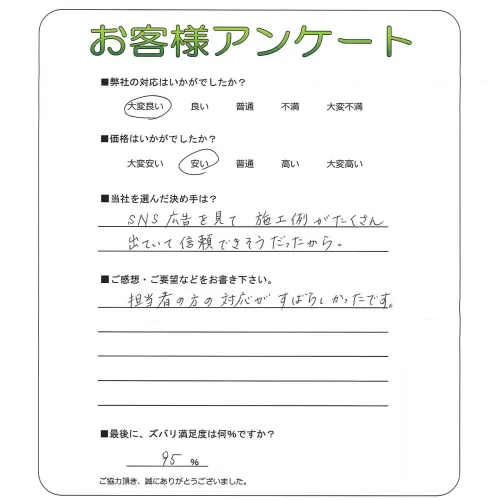 お客様アンケート
■弊社の対応はいかがでしたか？
大変良い 良い 普通 不満 大変不満
■価格はいかがでしたか？
大変安い 安い 普通 高い 大変高い
■当社を選んだ決め手は？
SNS広告を見て 施工例がたくさん
出ていて信頼できそうだったから。
■ご感想・ご要望などをお書き下さい。
担当者の方の対応がすばらしかったです。
■最後に、ズバリ満足度は何％ですか？
95 ％
ご協力頂き、誠にありがとうございました。